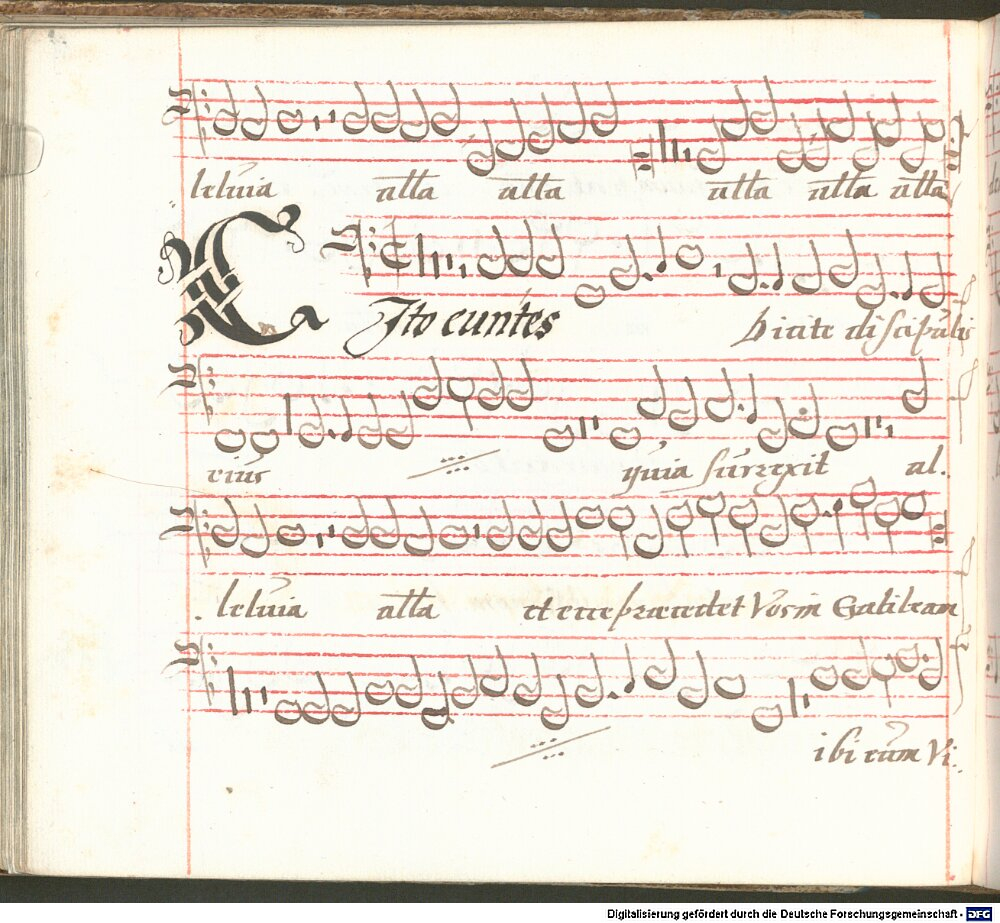 leluia alla alla alla alla alla
Cito euntes Dicite discipulis
eius quia surrexit al.
leluia alla et ecce præcedet Vos in Galilean
ibi eum Vi:
Digitalisierung gefördert durch die Deutsche Forschungsgemeinschaft - DFG